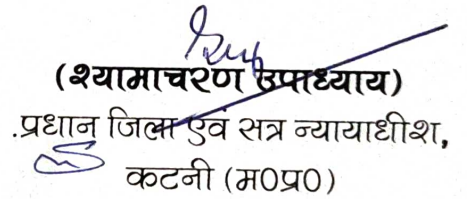 (श्यामाचरण उपाध्याय)
.प्रधान जिला एवं सत्र न्यायाधीश,
कटनी (म0प्र0)